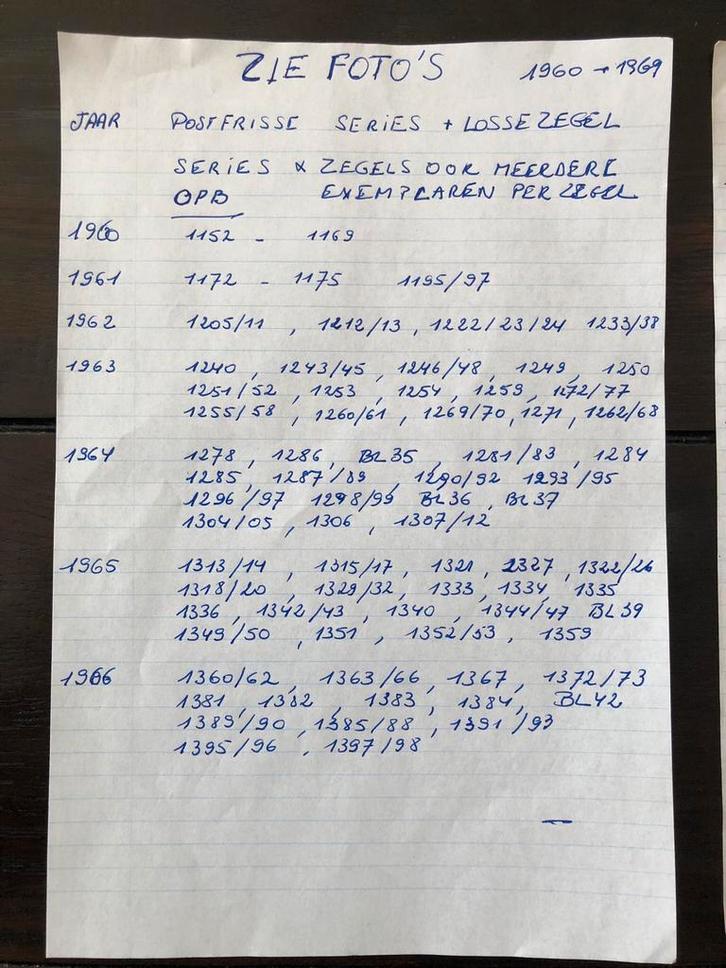 ZIE FOTO'S 1960 → 1969
JAAR POSTFRISSE SERIES + LOSSE ZEGEL
SERIES & ZEGELS OOK MEERDERE
OPB EXEMPLAREN PER ZEGEL
1960 1152 - 1169
1961 1172 - 1175 1195/97
1962 1205/11 , 1212/13 , 1222/23/24 1233/38
1963 1240 , 1243/45 , 1246/48 , 1249 , 1250
1251/52 , 1253 , 1254 , 1259 , 1272/77
1255/58 , 1260/61 , 1269/70 , 1271 , 1262/68
1964 1278 , 1286 , BL35 , 1281/83 , 1284
1285 , 1287/89 , 1290/92 1293/95
1296/97 1298/99 BL36 , BL37
1304/05 , 1306 , 1307/12
1965 1313/14 , 1315/17 , 1321 , 1327 , 1322/26
1318/20 , 1329/32 , 1333 , 1334 , 1335
1336 , 1342/43 , 1340 , 1344/47 BL39
1349/50 , 1351 , 1352/53 , 1359
1966 1360/62 , 1363/66 , 1367 , 1372/73
1381 , 1382 , 1383 , 1384 , BL42
1389/90 , 1385/88 , 1391/93
1395/96 , 1397/98